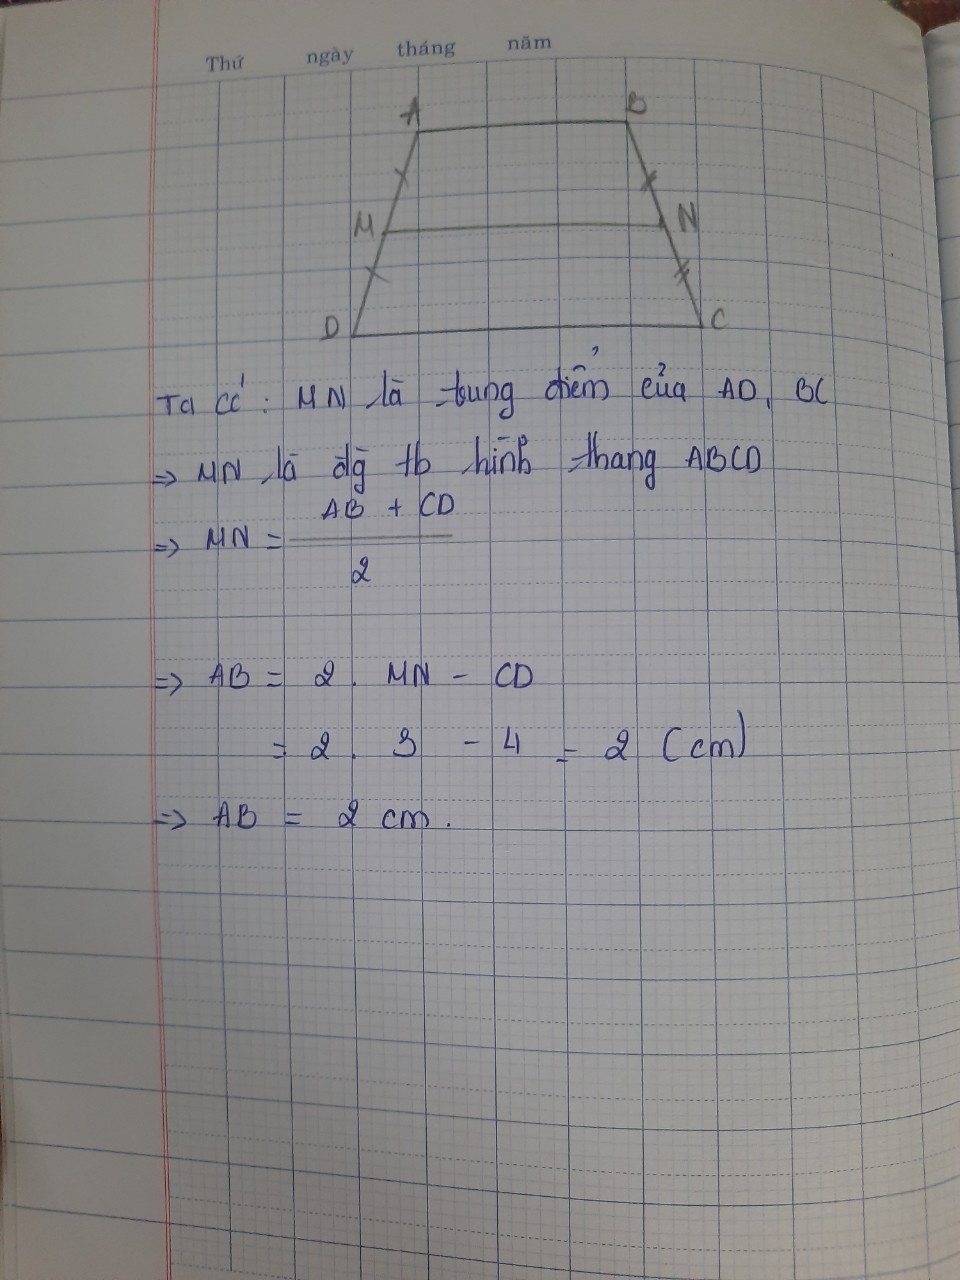 Thứ ngày tháng năm
A B
M N
D C
Ta có : MN là trung điểm của AD, BC
=> MN là đg tb hình thang ABCD
=> MN = AB + CD
2
=> AB = 2 . MN - CD
= 2 . 3 - 4 = 2 (cm)
=> AB = 2 cm.